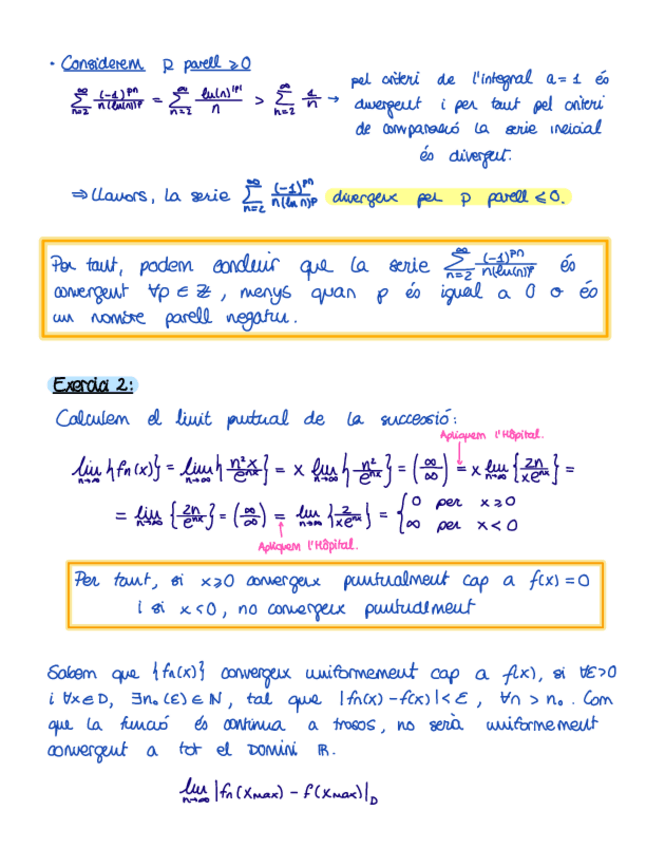 · Considerem p parell ≥ 0
∑_{n=2}^{∞} (-1)^{pn} / n(ln(n))^p = ∑_{n=2}^{∞} ln(n)^{|p|} / n > ∑_{n=2}^{∞} 1/n → pel criteri de l'integral a = 1 és
divergent i per tant pel criteri
de comparació la serie ineicial
és divergent.
⇒ Llavors, la serie ∑_{n=2}^{∞} (-1)^{pn} / n(ln n)^p divergeix per p parell ≤ 0.
Per tant, podem concluir que la serie ∑_{n=2}^{∞} (-1)^{pn} / n(ln(n))^p és
convergent ∀p ∈ ℤ, menys quan p és igual a 0 o és
un nombre parell negatiu.
Exercici 2:
Calculem el limit puntual de la successió:
Apliquem l'Hôpital.
lim_{n→∞} {fn(x)} = lim_{n→∞} { n²x / e^{nx} } = x lim_{n→∞} { n² / e^{nx} } = (∞/∞) = x lim_{n→∞} { 2n / xe^{nx} } =
= lim_{n→∞} { 2n / e^{nx} } = (∞/∞) = lim_{n→∞} { 2 / xe^{nx} } = { 0 per x ≥ 0
∞ per x < 0
Apliquem l'Hôpital.
Per tant, si x ≥ 0 convergeix puntualment cap a f(x) = 0
i si x < 0, no convergeix puntualment
Sabem que {fn(x)} convergeix uniformement cap a f(x), si ∀ε>0
i ∀x∈D, ∃n₀(ε)∈ℕ, tal que |fn(x) - f(x)| < ε, ∀n > n₀. Com
que la funció és continua a trosos, no serà uniformement
convergent a tot el Domini ℝ.
lim_{n→∞} |fn(xmax) - f(xmax)|_D